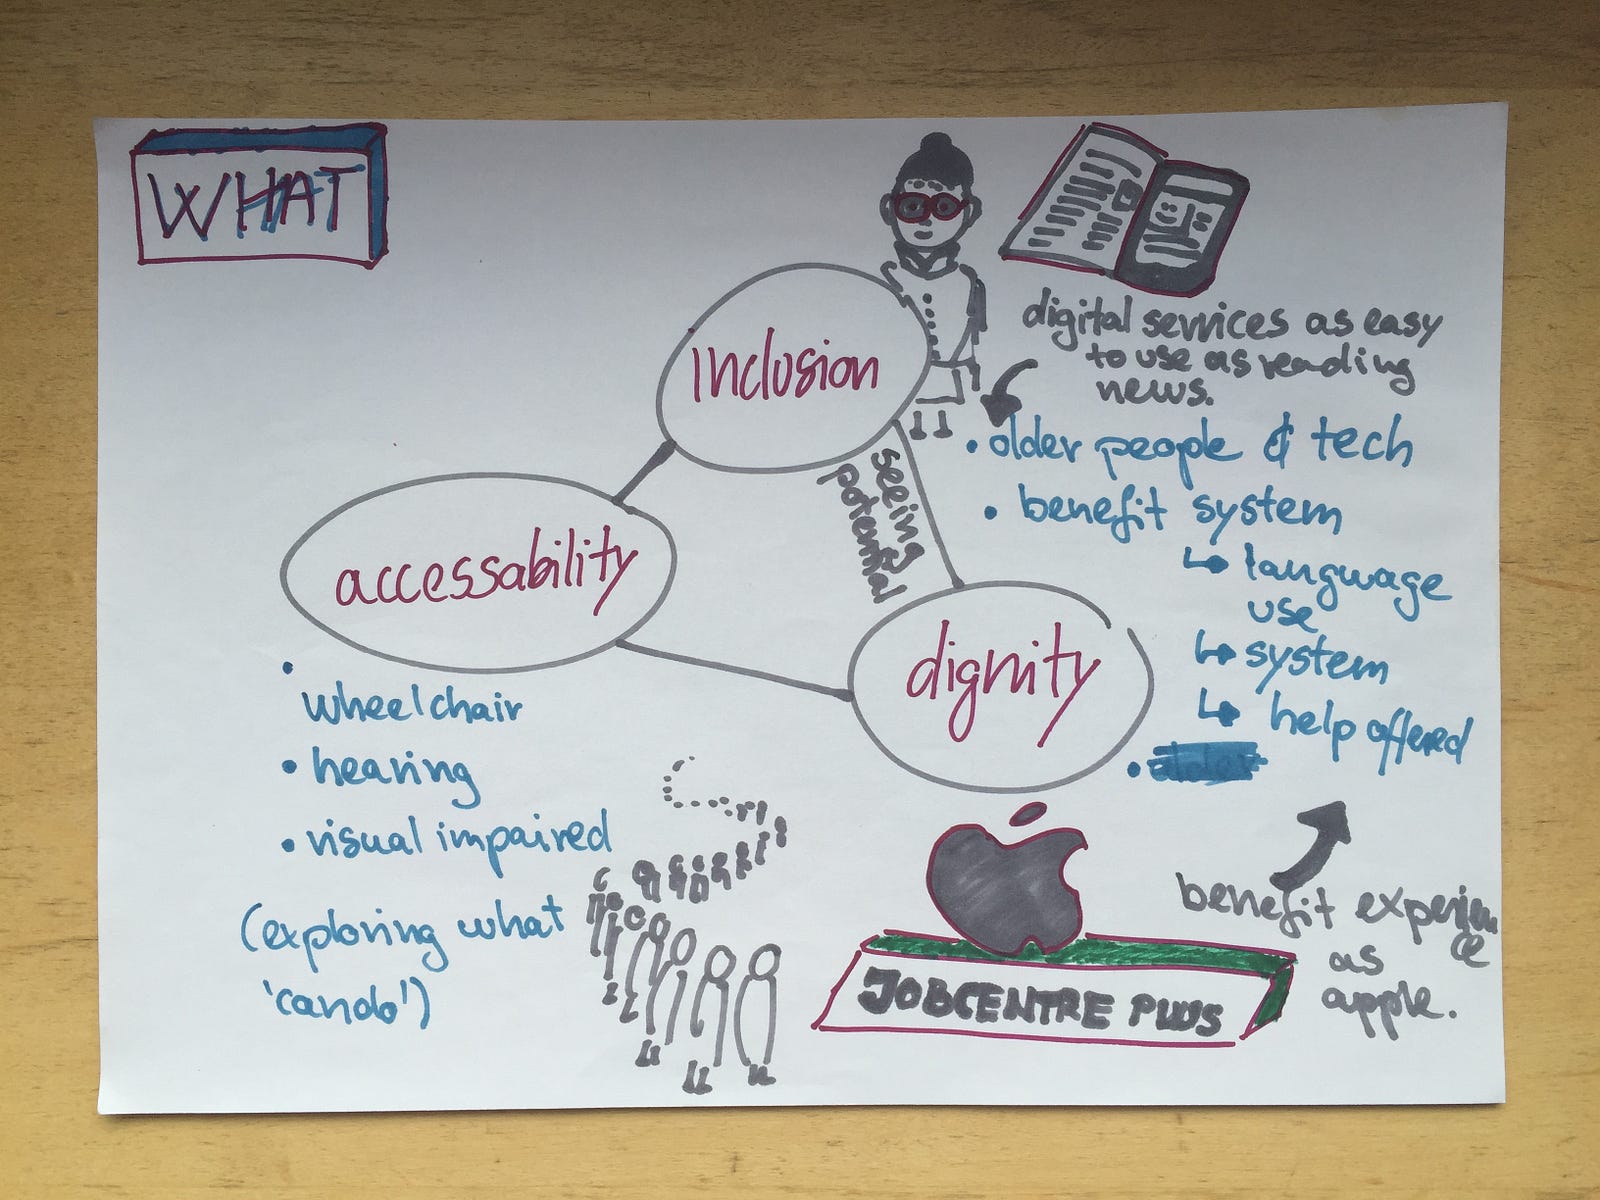 WHAT
inclusion
digital services as easy
to use as reading
news.
• older people & tech
• benefit system
↳ language
use
↳ system
↳ help offered
•
seeing
potential
accessability
dignity
•
wheelchair
• hearing
• visual impaired
(exploring what
'cando')
JOBCENTRE PLUS
benefit experien
ce
as
apple.